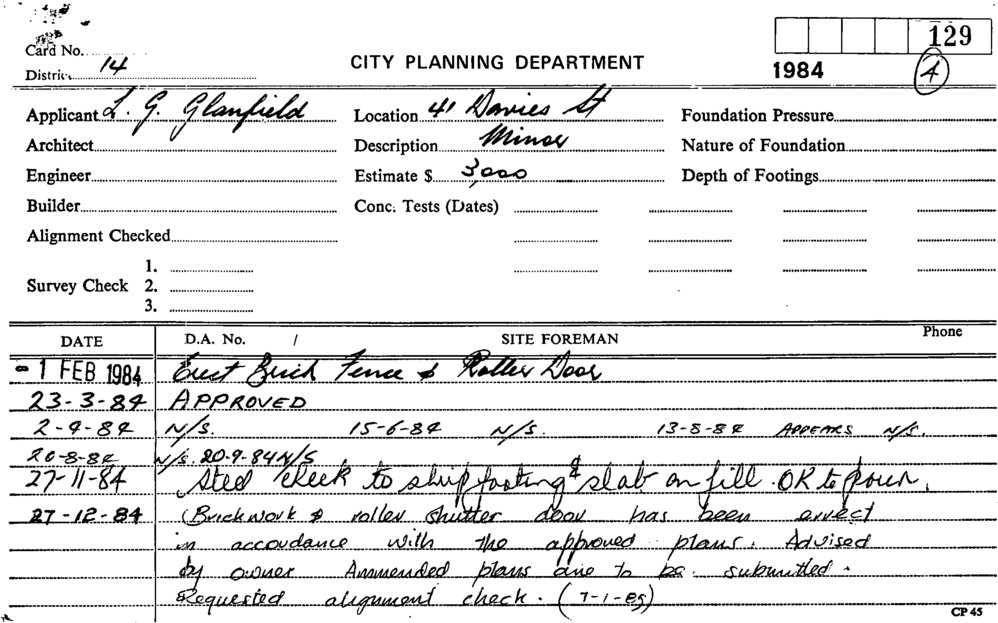 129
Card No.
District 14
CITY PLANNING DEPARTMENT
1984
A
Applicant L. G. Glanfield
Location 41 Davies St
Foundation Pressure
Architect
Description Minor
Nature of Foundation
Engineer
Estimate $ 3,000
Depth of Footings
Builder
Conc. Tests (Dates)
Alignment Checked
1.
Survey Check 2.
3.
DATE D.A. No. / SITE FOREMAN Phone
-1 FEB 1984 Erect Brick Fence & Roller Door
23-3-84 APPROVED
2-4-84 N/S. 15-6-84 N/S. 13-8-84 APPEARS N/S.
20-8-84 N/S. 20-9-84 N/S
27-11-84 Steel check to strip footing & slab on fill. OK to pour.
27-12-84 Brickwork & roller shutter door has been errect
in accordance with the approved plans. Advised
by owner Ammended plans are to be submitted.
Requested alignment check. (7-1-85)
CP 45